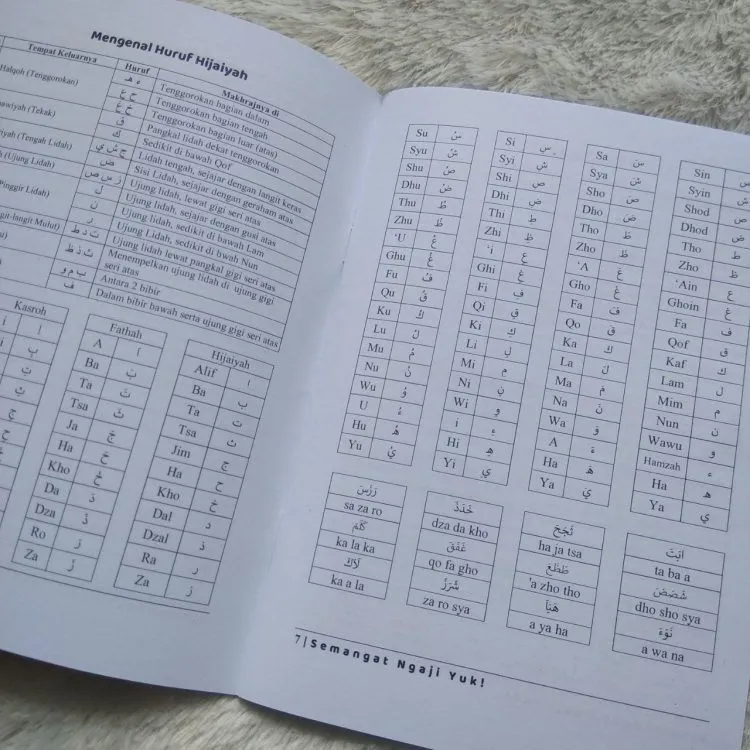 Mengenal Huruf Hijaiyah
Tempat Keluarnya Huruf Makhrajnya di
Halqoh (Tenggorokan) ء ه Tenggorokan bagian dalam
ح ع Tenggorokan bagian tengah
خ غ Tenggorokan bagian luar (atas)
(Tekak) ق Pangkal lidah dekat tenggorokan
ك Sedikit di bawah Qof
(Tengah Lidah) ج ش ي Lidah tengah, sejajar dengan langit keras
ض Sisi Lidah, sejajar dengan geraham atas
(Ujung Lidah) ز س ص Ujung lidah, lewat gigi seri atas
Pinggir Lidah) ل Ujung lidah, sejajar dengan gusi atas
ن Ujung lidah, sedikit di bawah Lam
ر Ujung Lidah, sedikit di bwah Nun
ت د ط Ujung lidah lewat pangkal gigi seri atas
ث ذ ظ Menempelkan ujung lidah di ujung gigi
seri atas
ب م و Antara 2 bibir
ف Dalam bibir bawah serta ujung gigi seri atas
Kasroh
Fathah
A اَ
Ba بَ
Ta تَ
Tsa ثَ
Ja جَ
Ha حَ
Kho خَ
Da دَ
Dza ذَ
Ro رَ
Za زَ
Hijaiyah
Alif ا
Ba ب
Ta ت
Tsa ث
Jim ج
Ha ح
Kho خ
Dal د
Dzal ذ
Ra ر
Za ز
Su سُ
Syu شُ
Shu صُ
Dhu ضُ
Thu طُ
Zhu ظُ
'U عُ
Ghu غُ
Fu فُ
Qu قُ
Ku كُ
Lu لُ
Mu مُ
Nu نُ
Wu وُ
U ءُ
Hu هُ
Yu يُ
Si سِ
Syi شِ
Shi صِ
Dhi ضِ
Thi طِ
Zhi ظِ
'i عِ
Ghi غِ
Fi فِ
Qi قِ
Ki كِ
Li لِ
Mi مِ
Ni نِ
Wi وِ
i ءِ
Hi هِ
Yi يِ
Sa سَ
Sya شَ
Sho صَ
Dho ضَ
Tho طَ
Zho ظَ
'A عَ
Gho غَ
Fa فَ
Qo قَ
Ka كَ
La لَ
Ma مَ
Na نَ
Wa وَ
A ءَ
Ha هَ
Ya يَ
Sin س
Syin ش
Shod ص
Dhod ض
Tho ط
Zho ظ
'Ain ع
Ghoin غ
Fa ف
Qof ق
Kaf ك
Lam ل
Mim م
Nun ن
Wawu و
Hamzah ء
Ha ه
Ya ي
sa za ro
ka la ka
ka a la
dza da kho
qo fa gho
za ro sya
ha ja tsa
'a zho tho
a ya ha
ta ba a
dho sho sya
a wa na
7|Semangat Ngaji Yuk!